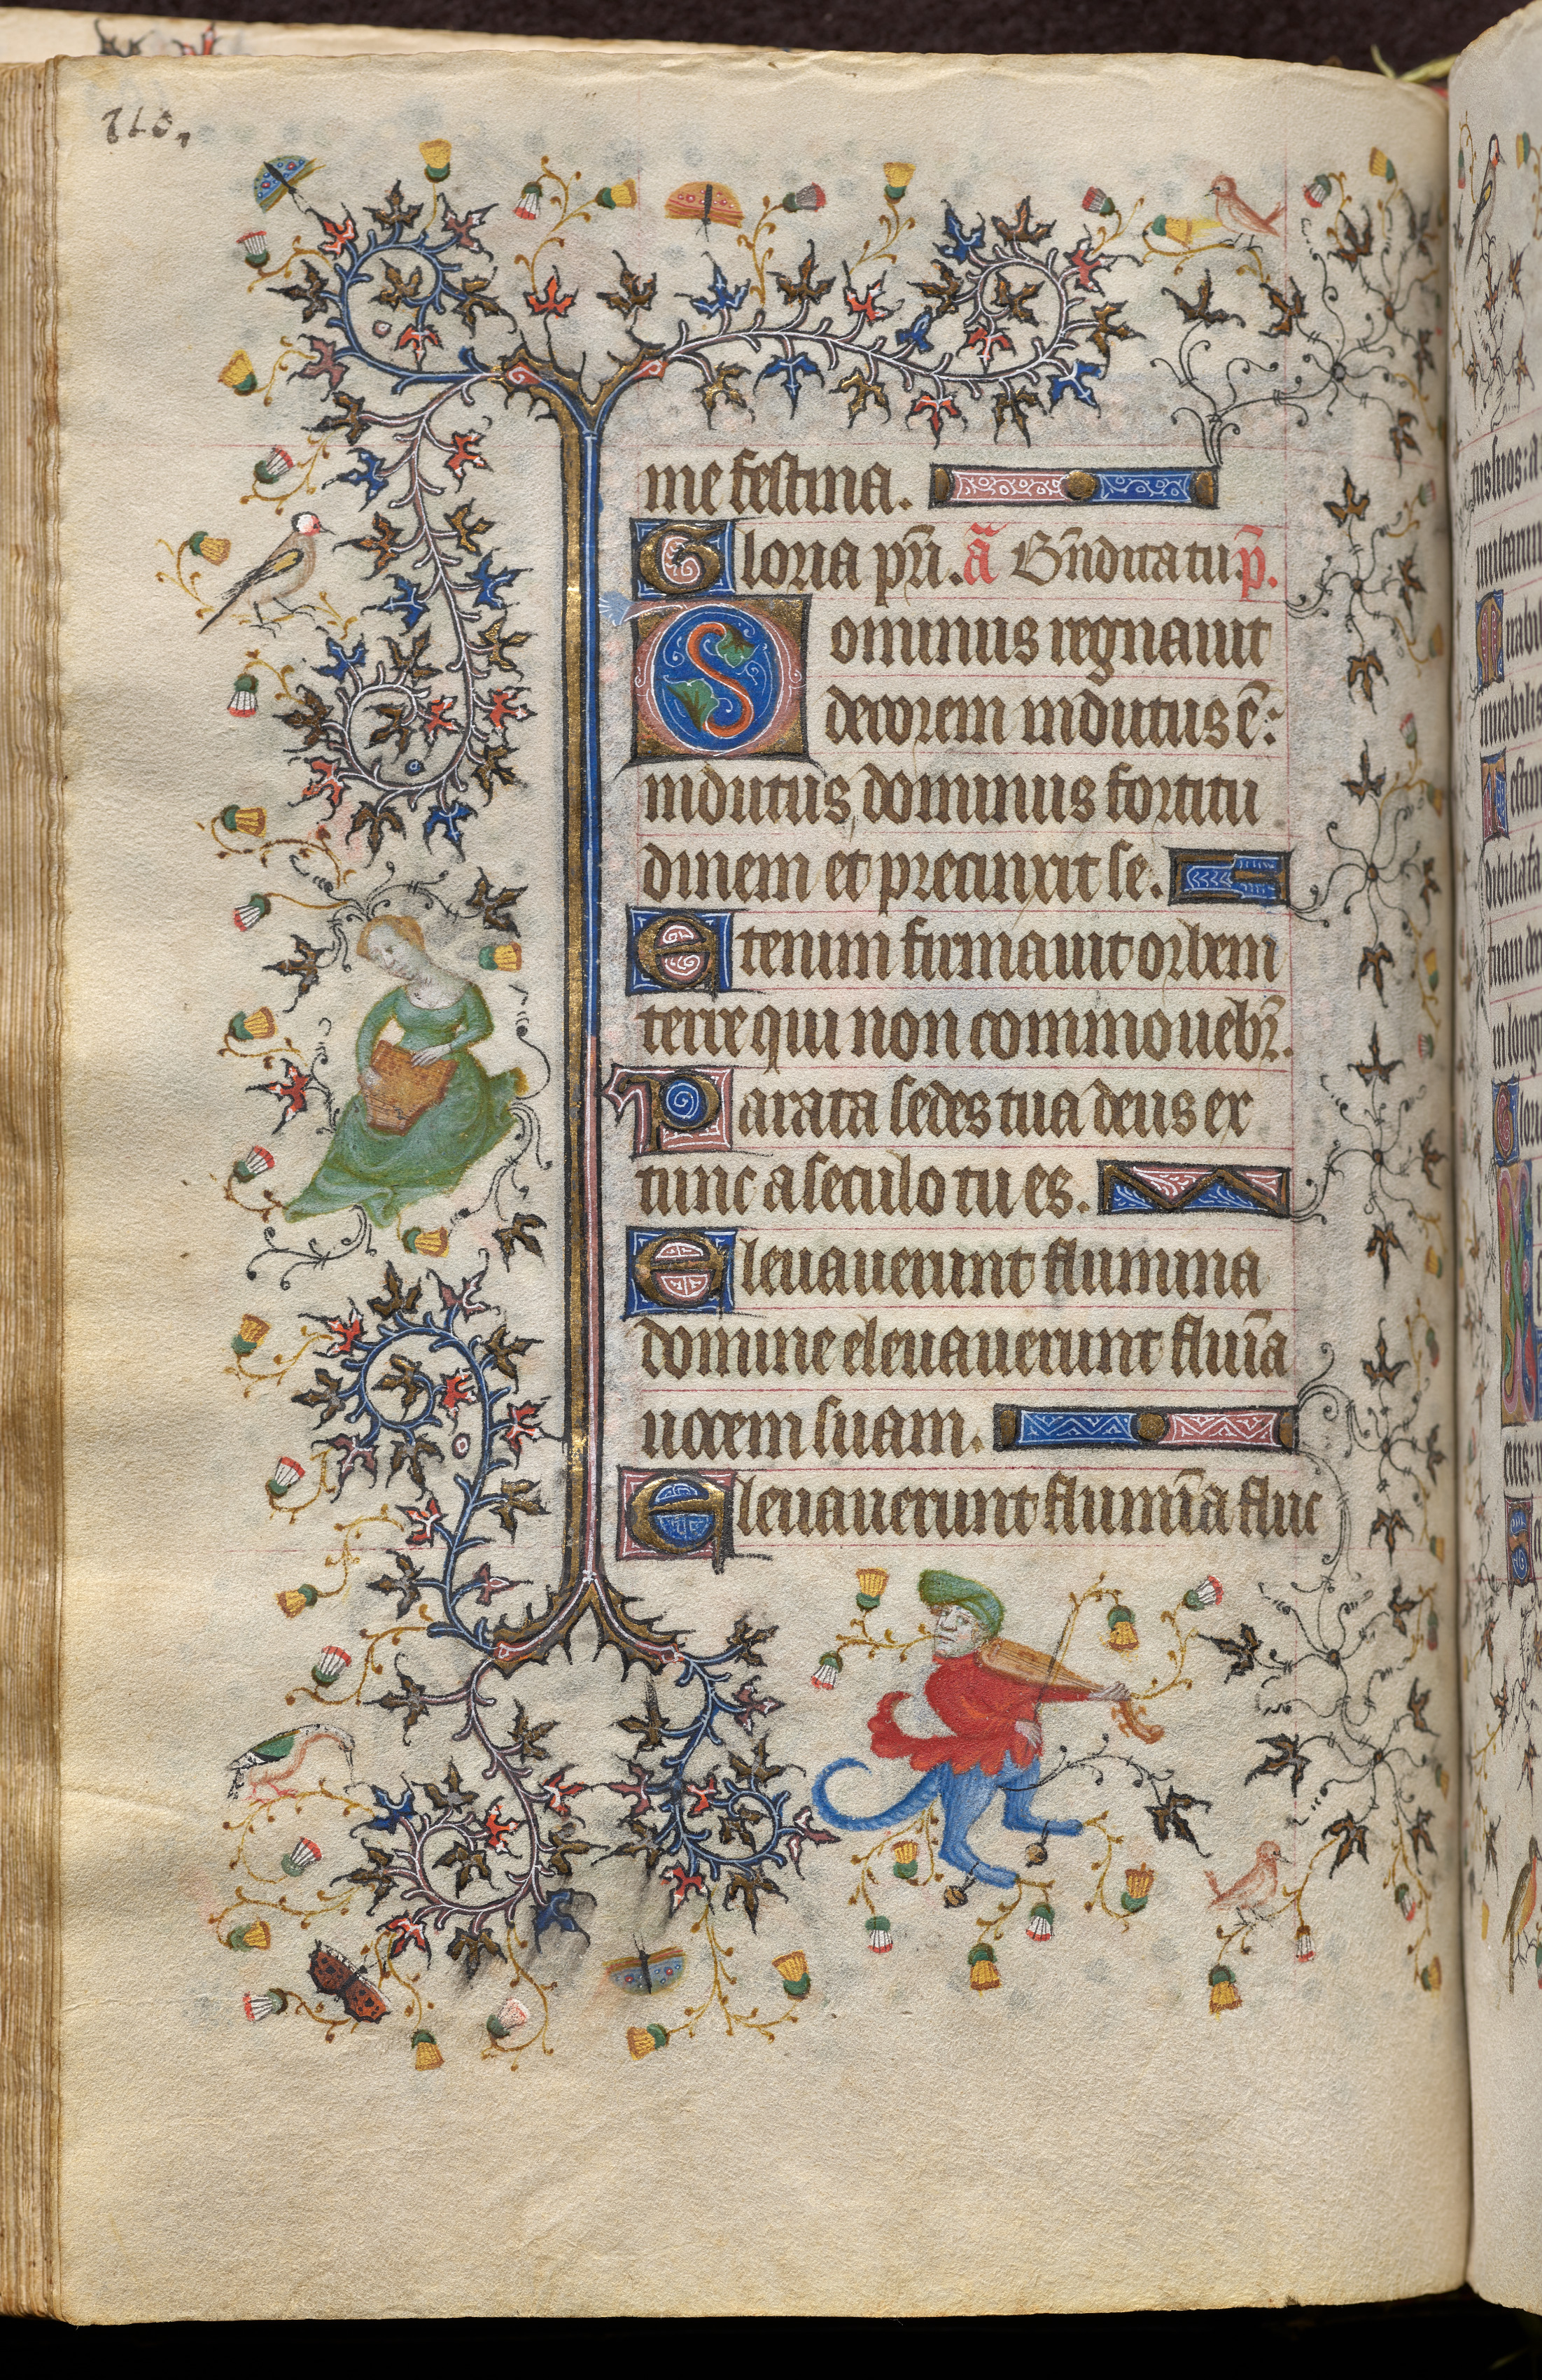 me festina.
Gloria pr̄i. ā Bn̄dicta tu p̄.
Dominus regnauit
decorem indutus ē:
indutus dominus fortitu
dinem et precinxit se.
Etenim firmauit orbem
terre qui non commouebr̄.
Parata sedes tua deus ex
tunc a seculo tu es.
Eleuauerunt flumina
domine eleuauerunt fluīa
uocem suam.
Eleuauerunt flumīa fluc